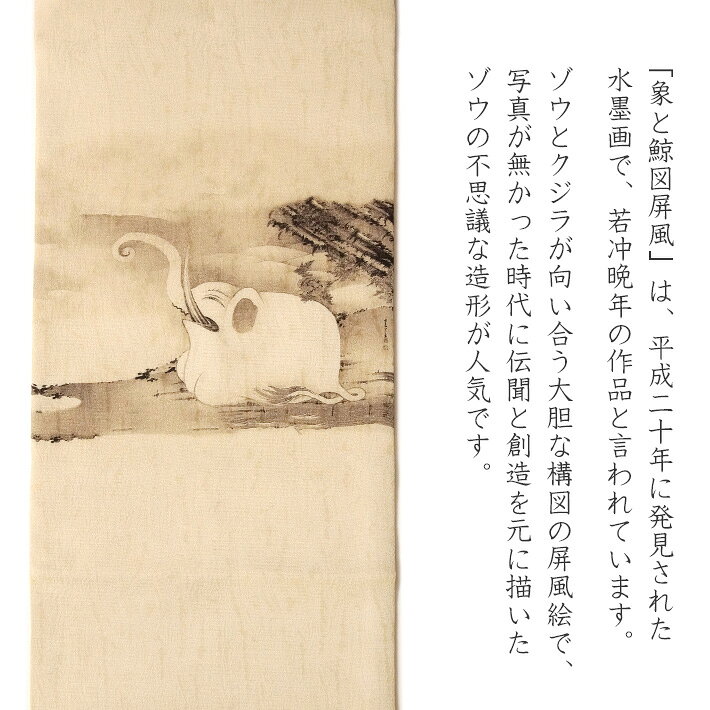 「象と鯨図屏風」は、平成二十年に発見された
水墨画で、若冲晩年の作品と言われています。
ゾウとクジラが向い合う大胆な構図の屏風絵で、
写真が無かった時代に伝聞と創造を元に描いた
ゾウの不思議な造形が人気です。